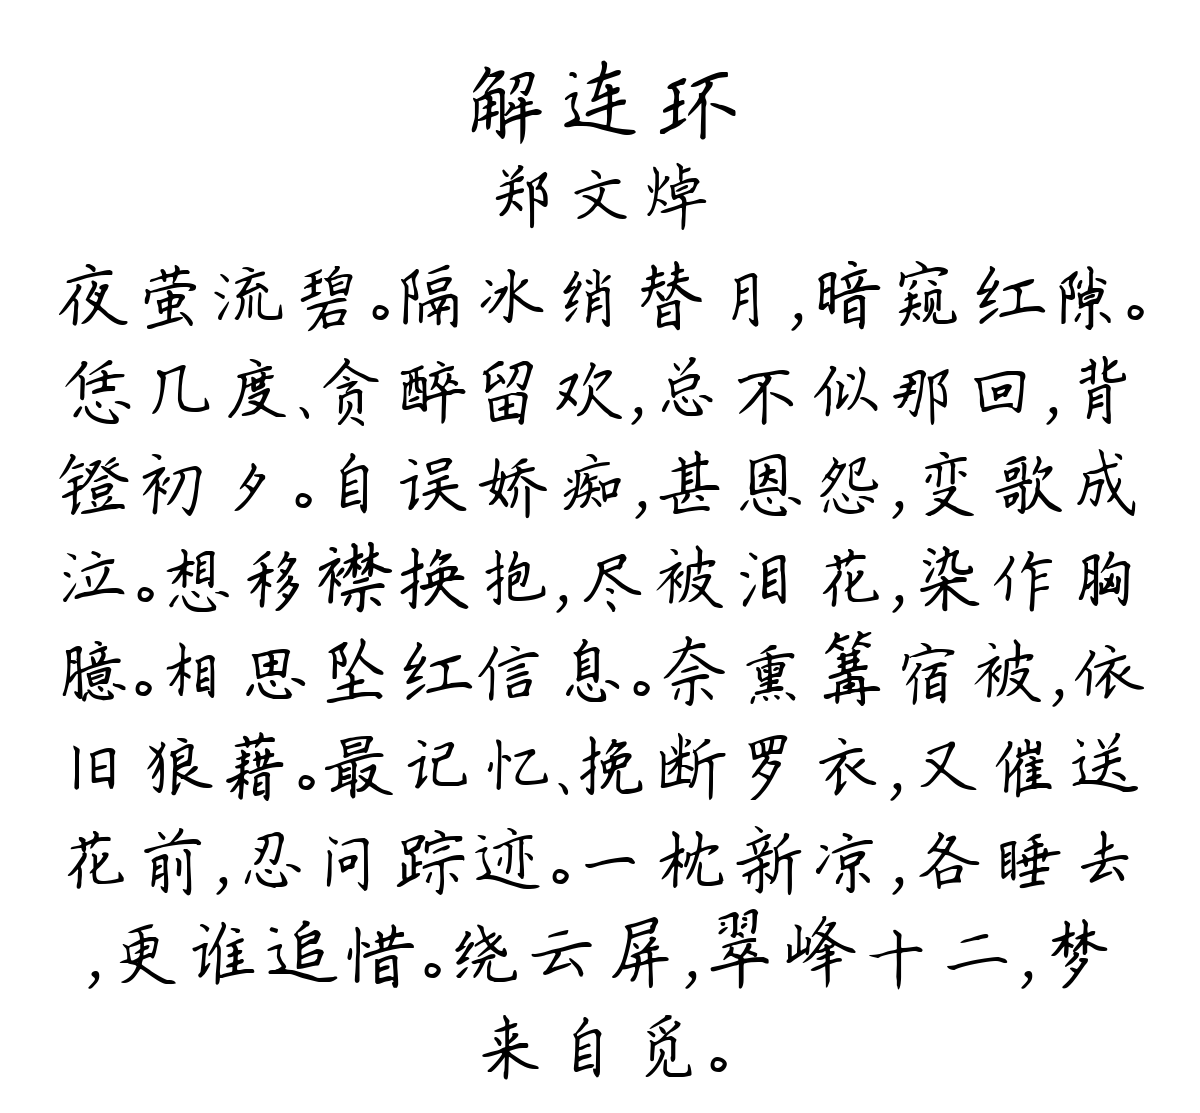 解连环
郑文焯
夜萤流碧。隔冰绡替月,暗窥红隙。
恁几度、贪醉留欢,总不似那回,背
镫初夕。自误娇痴,甚恩怨,变歌成
泣。想移襟换抱,尽被泪花,染作胸
臆。相思坠红信息。奈熏篝宿被,依
旧狼藉。最记忆、挽断罗衣,又催送
花前,忍问踪迹。一枕新凉,各睡去
,更谁追惜。绕云屏,翠峰十二,梦
来自觅。